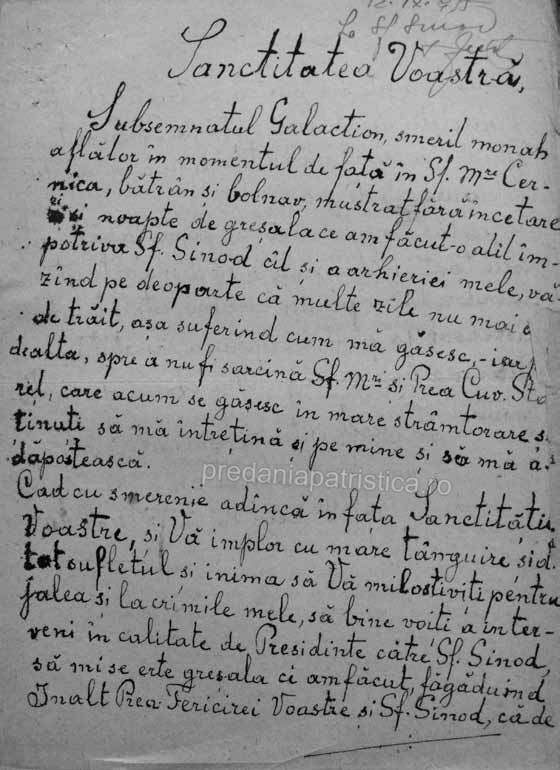 12.IX.
Sf Sinod
Sanctitatea Voastră,
Subsemnatul Galaction, smeril monah
aflător în momentul de față în Sf. Mre Cer-
nica, bătrân si bolnav, mustrat fără încetare
zi și noapte de greșala ce am făcut-o atît îm-
potriva Sf. Sinod cît și a arhieriei mele, vă-
zînd pe deoparte că multe zile nu mai
de trăit, așa suferind cum mă găsesc, - iar
dealta, spre a nu fi sarcină Sf. Mri si Prea Cuv. Sta
reț, care acum se găsesc în mare strâmtorare s.
tinuti să mă întrețină și pe mine și sa mă a-
dăpostească.
predaniapatristica.ro
Cad cu smerenie adîncă în fața Sanctității
Voastre, si Vă implor cu mare tânguire și d.
tot sufletul si inima să Vă milostiviti pentru
jalea si lacrimile mele, să bine voiți a inter-
veni în calitate de Presidinte către Sf. Sinod,
să mi se erte greșala ci am făcut, făgăduind
Inalt Prea Fericirei Voastre și Sf. Sinod, că de